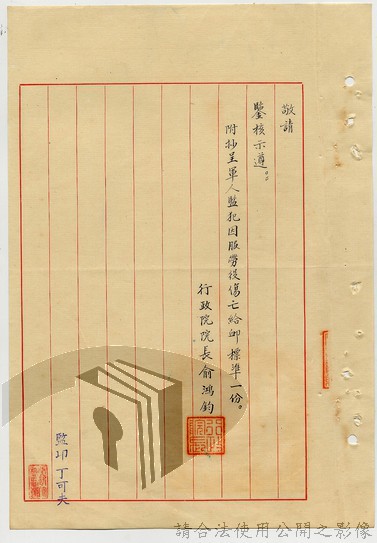 敬請
鑒核示遵。
附抄呈軍人監犯因服勞役傷亡給卹標準一份。
行政院院長俞鴻鈞
監印丁可夫
請合法使用公開之影像